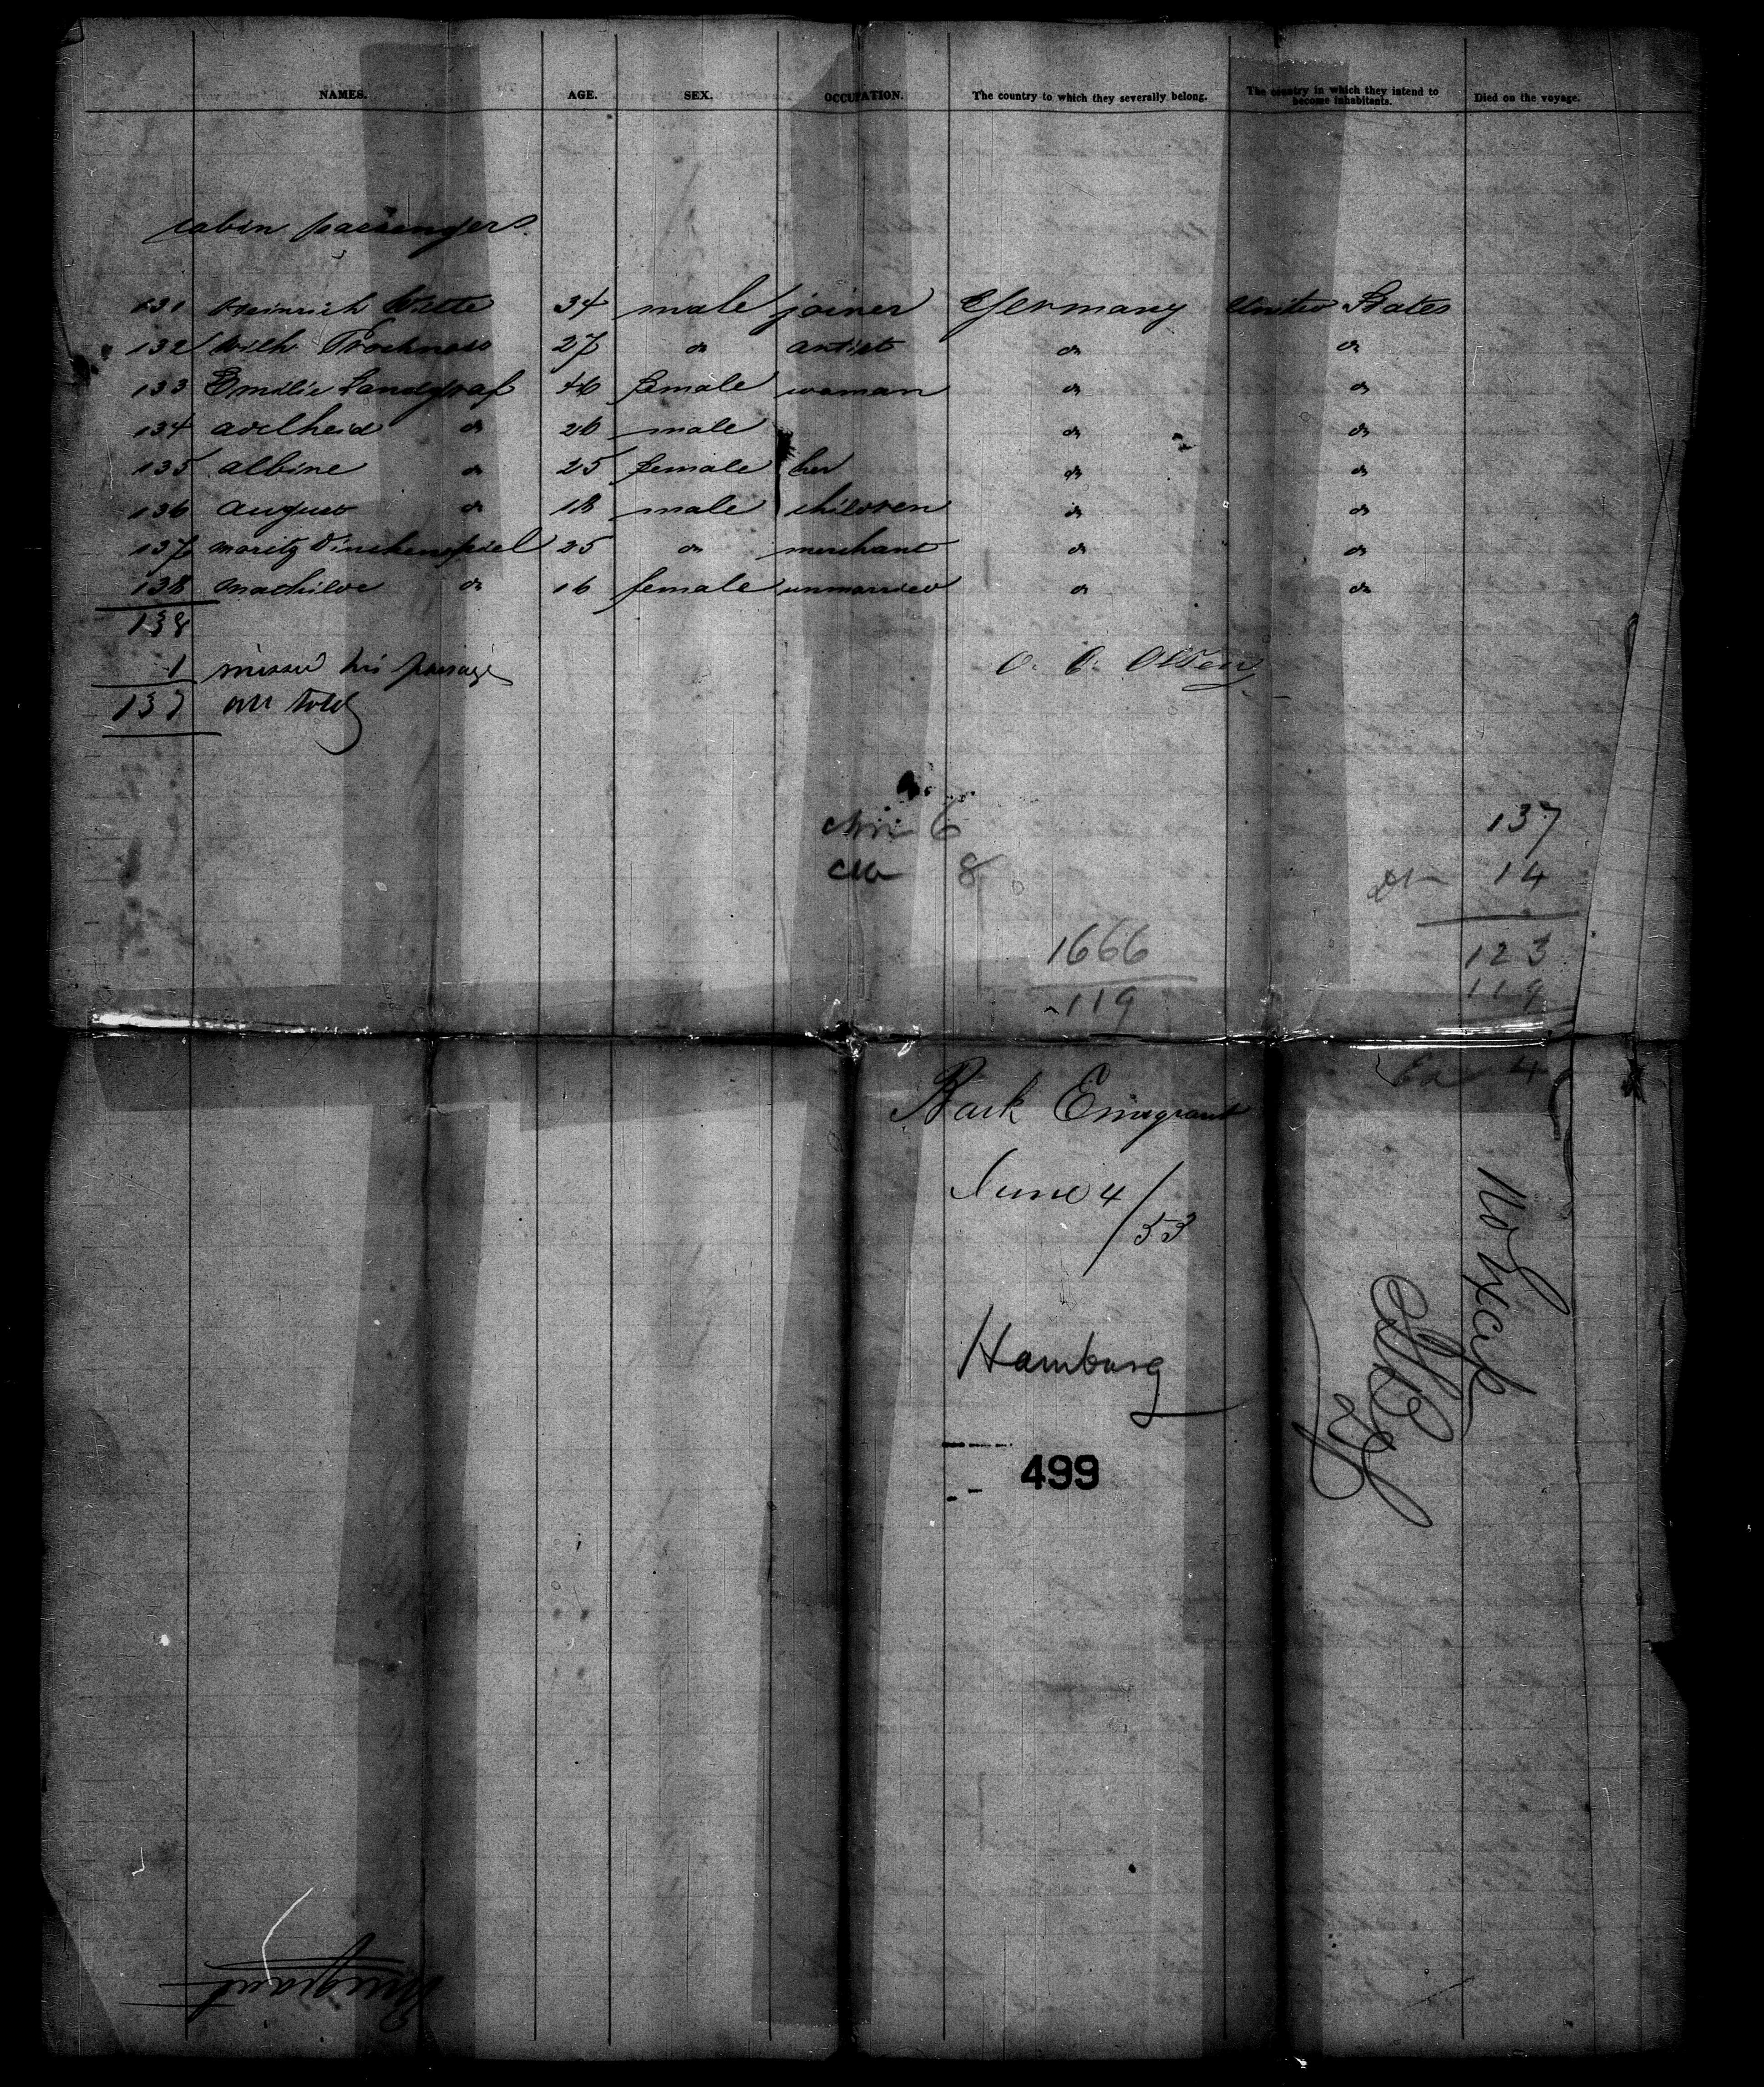 NAMES. AGE. SEX. OCCUPATION. The country to which they severally belong. The country in which they intend to become inhabitants. Died on the voyage.
cabin passengers.
131 Heinrich Witte 34 male joiner Germany United States
132 Wilh 27 do artist do do
133 Emilie Landgraf 46 female woman do do
134 adelheid do 26 male do do
135 albine do 25 female her do do
136 august do 18 male children do do
137 moritz Dinckenspiel 25 do merchant do do
138 mathilde do 16 female unmarried do do
138
1 missed his passage O. C. Olsen
137 all told
137
6
14
8
123
1666
119
119
4
Bark Emigrant
June 4/53
Hamburg
499
Emigrant